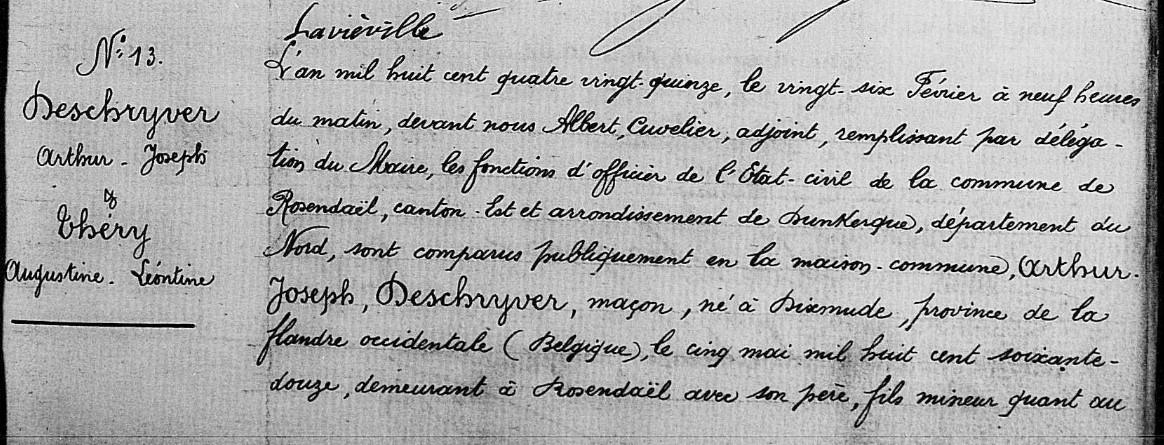 N° 13.
Deschryver
Arthur - Joseph
&
Théry
Augustine - Léontine
Laviéville
L'an mil huit cent quatre vingt-quinze, le vingt-six Février à neuf heures
du matin, devant nous Albert, Cuvelier, adjoint, remplissant par déléga-
tion du Maire, les fonctions d'officier de l'Etat-civil de la commune de
Rosendaël, canton-Est et arrondissement de Dunkerque, département du
Nord, sont comparus publiquement en la maison-commune, Arthur-
Joseph, Deschryver, maçon, né à Dixmude, province de la
flandre occidentale (Belgique), le cinq mai mil huit cent soixante-
douze, demeurant à Rosendaël avec son père, fils mineur quant au